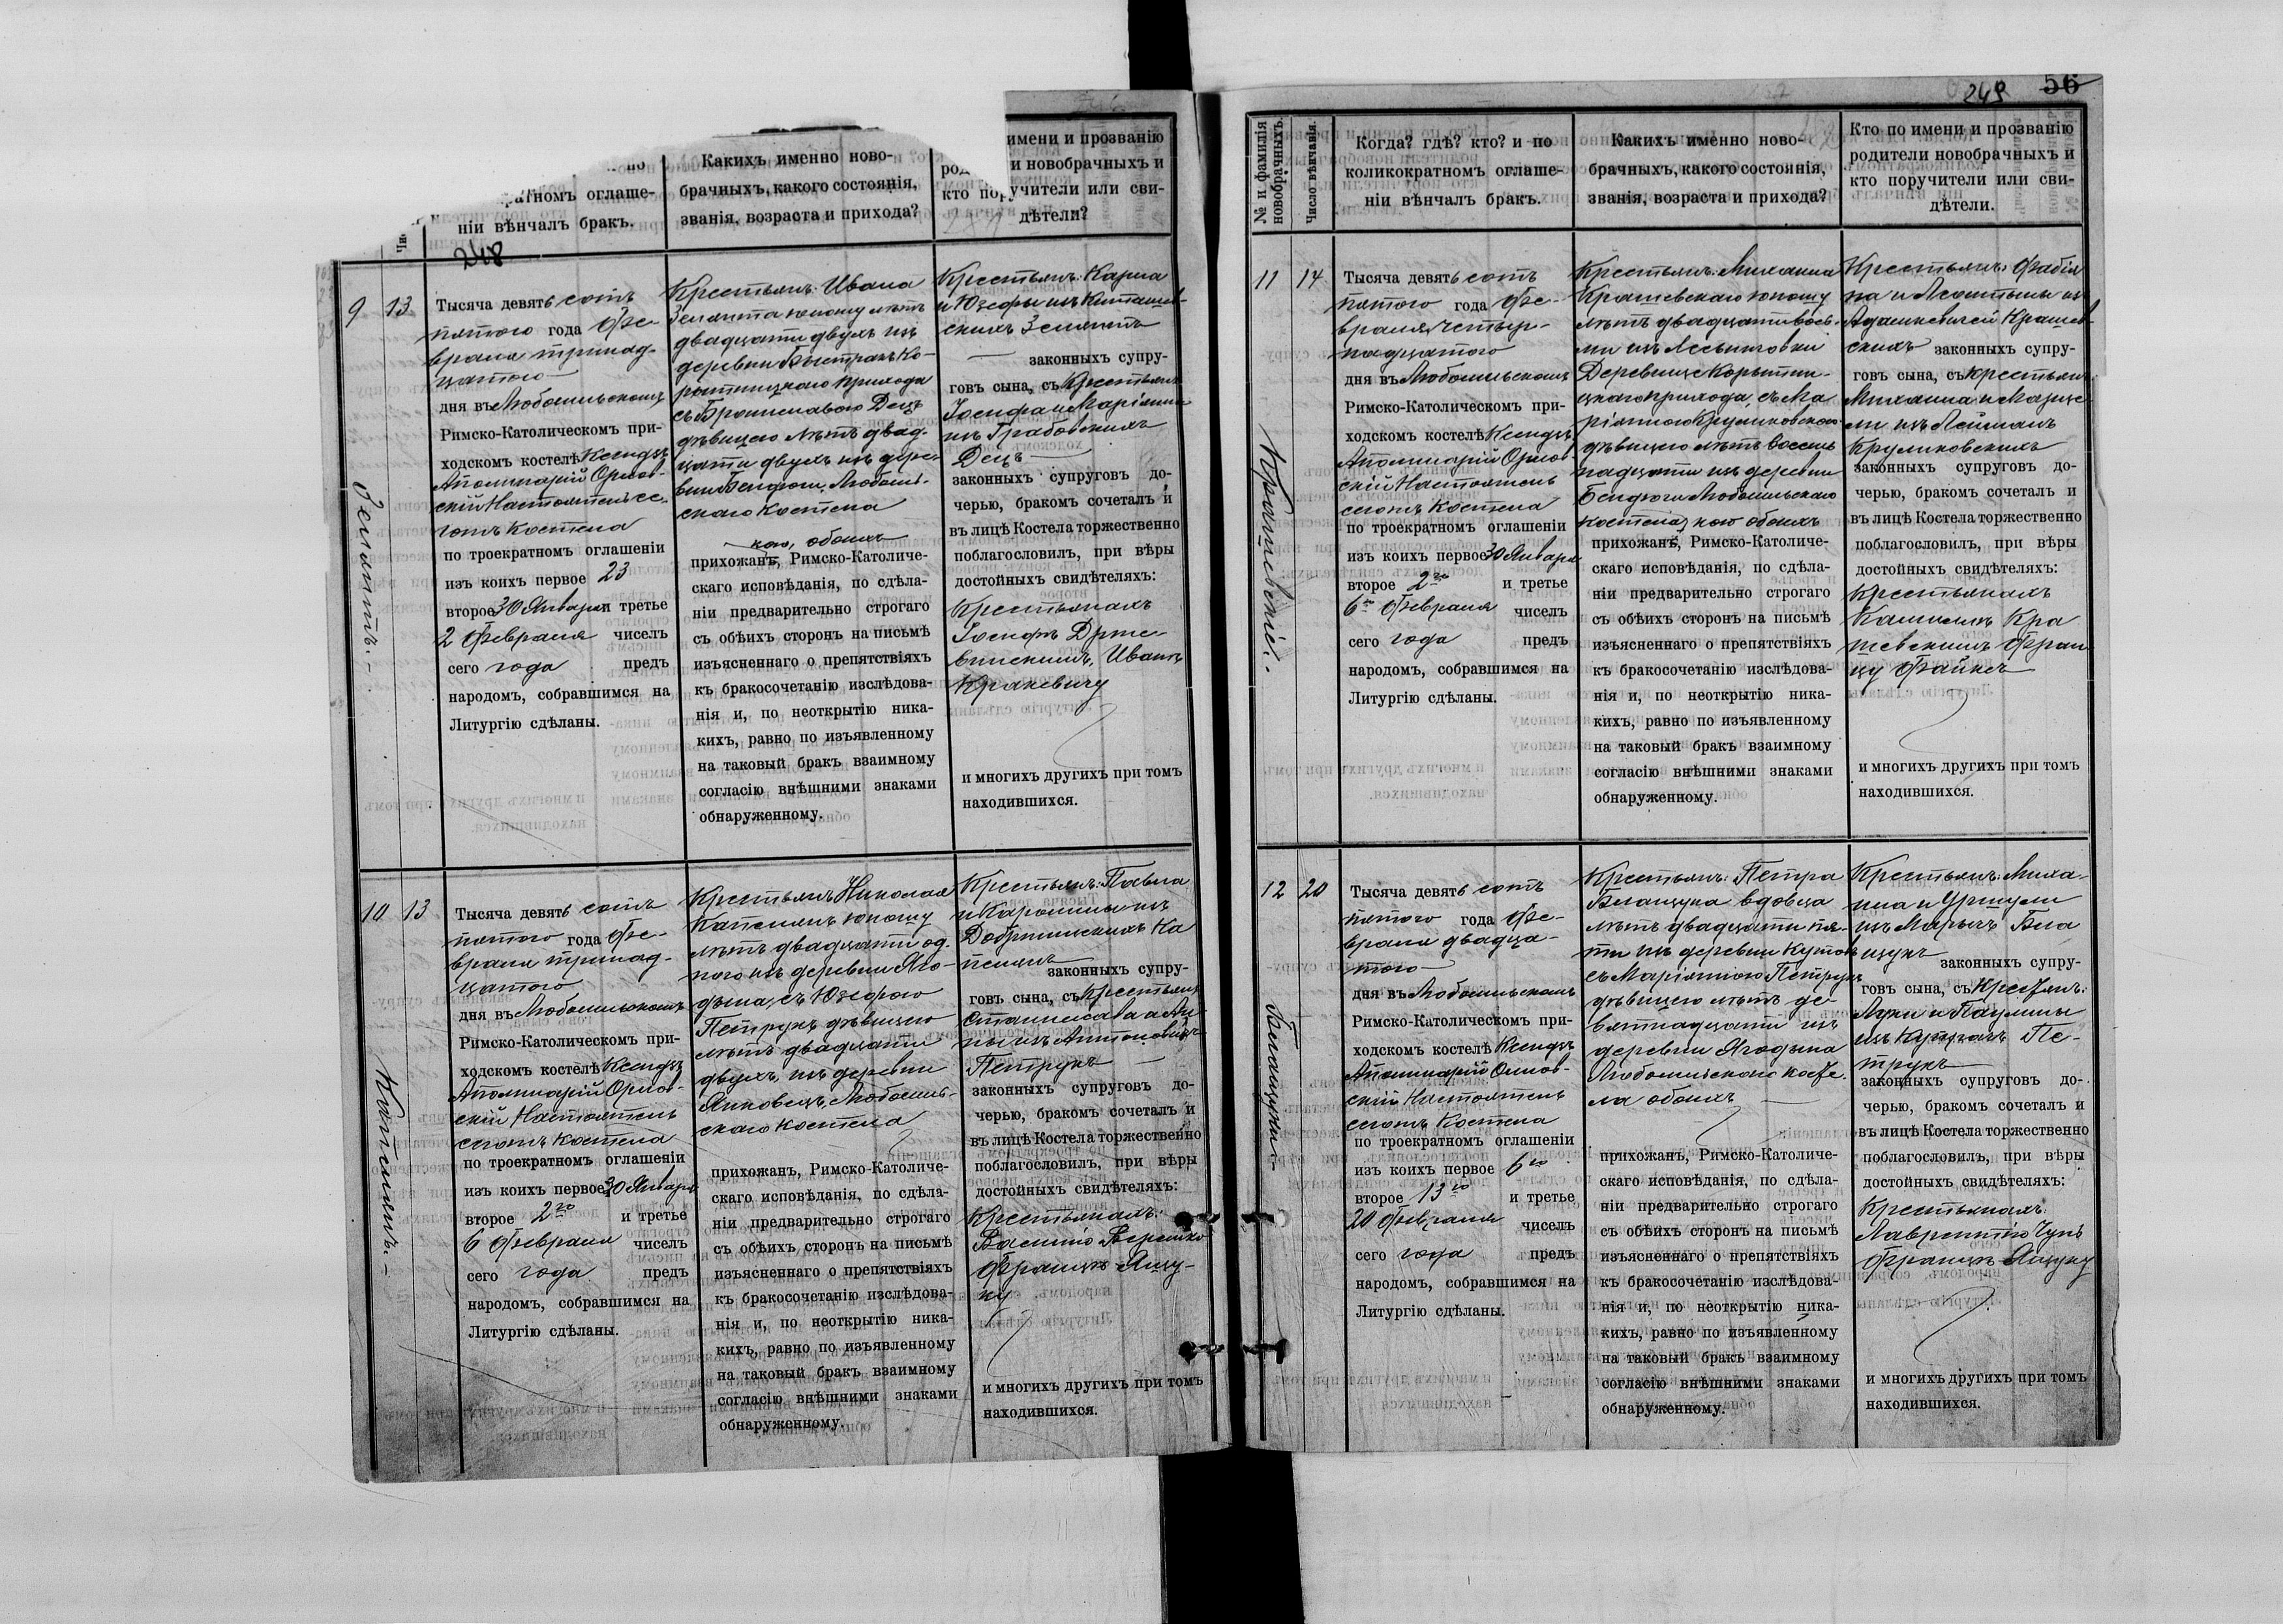 248
ратномъ оглаше-
ніи вѣнчалъ бракъ.
Какихъ именно ново-
брачныхъ, какого состоянія,
званія, возраста и прихода?
имени и прозванію
и новобрачныхъ и
кто поручители или сви-
дѣтели?
9
13
Тысяча девять сотъ
пятого года Фе-
враля тринад-
цатого
дня въ Любомльскомъ
Римско-Католическомъ при-
ходскомъ костелѣ Ксендзъ
Аполинарій Орлов-
скій Настоятель се-
готъ Костела
по троекратномъ оглашеніи
изъ коихъ первое 23
второе 30 Января и третье
2 Февраля чиселъ
сего года предъ
народомъ, собравшимся на
Литургію сдѣланы.
Крестьян. Ивана
Земянта юношу лѣтъ
двадцати двухъ изъ
деревни Быстракъ Ко-
рытницкаго прихода
съ Брониславою Децъ
дѣвицею лѣтъ двад-
цати двухъ изъ дере-
вни Бендюги, Любомль-
скаго Костела
кою, обоихъ
прихожанъ, Римско-Католиче-
скаго исповѣданія, по сдѣла-
ніи предварительно строгаго
съ обѣихъ сторонъ на письмѣ
изъясненнаго о препятствіяхъ
къ бракосочетанію изслѣдова-
нія и, по неоткрытію ника-
кихъ, равно по изъявленному
на таковый бракъ взаимному
согласію внѣшними знаками
обнаруженному.
Крестьян. Карла
и Юзефы изъ
скихъ Земянтъ
законныхъ супру-
говъ сына, съ Крестьян.
Іосифа и Маріанны
изъ Грабовскихъ
Децъ
законныхъ супруговъ до-
черью, бракомъ сочеталъ и
въ лицѣ Костела торжественно
поблагословилъ, при вѣры
достойныхъ свидѣтеляхъ:
Крестьянахъ
Іосифъ Држе-
винскимъ, Иванъ
Кракевичу
и многихъ другихъ при томъ
находившихся.
Земянтъ.
10
13
Тысяча девять сотъ
пятого года Фе-
враля тринад-
цатого
дня въ Любомльскомъ
Римско-Католическомъ при-
ходскомъ костелѣ Ксендзъ
Аполинарій Орлов-
скій Настоятель
сеготъ Костела
по троекратномъ оглашеніи
изъ коихъ первое 30 Января
второе 2го и третье
6 Февраля чиселъ
сего года предъ
народомъ, собравшимся на
Литургію сдѣланы.
Крестьян. Николая
Капелянъ юношу
лѣтъ двадцати од-
ного изъ деревни Яго-
дына, съ Юзефою
Петрукъ дѣвицею
лѣтъ двадцати
двухъ, изъ деревни
Янковецъ, Любомль-
скаго Костела
прихожанъ, Римско-Католиче-
скаго исповѣданія, по сдѣла-
ніи предварительно строгаго
съ обѣихъ сторонъ на письмѣ
изъясненнаго о препятствіяхъ
къ бракосочетанію изслѣдова-
нія и, по неоткрытію ника-
кихъ, равно по изъявленному
на таковый бракъ взаимному
согласію внѣшними знаками
обнаруженному.
Крестьян. Павла
и Каролины изъ
Добрянскихъ Ка
пелянъ
законныхъ супру-
говъ сына, съ Крестьян.
Станислава и Ан-
ны изъ Антоновичъ
Петрукъ
законныхъ супруговъ до-
черью, бракомъ сочеталъ и
въ лицѣ Костела торжественно
поблагословилъ, при вѣры
достойныхъ свидѣтеляхъ:
Крестьянахъ:
Василію Терешко
Францъ Ящу-
ку
и многихъ другихъ при томъ
находившихся.
Капелянъ.
249 56
№ и фамилія
новобрачныхъ.
Число вѣнчанія.
Когда? гдѣ? кто? и по
коликократномъ оглаше-
ніи вѣнчалъ бракъ.
Какихъ именно ново-
брачныхъ, какого состоянія,
званія, возраста и прихода?
Кто по имени и прозванію
родители новобрачныхъ и
кто поручители или сви-
дѣтели.
11
14
Тысяча девять сотъ
пятого года Фе-
враля четыр-
надцатого
дня въ Любомльскомъ
Римско-Католическомъ при-
ходскомъ костелѣ Ксендзъ
Аполинарій Орлов-
скій Настоятель
сеготъ Костела
по троекратномъ оглашеніи
изъ коихъ первое 30 Января
второе 2го и третье
6го Февраля чиселъ
сего года предъ
народомъ, собравшимся на
Литургію сдѣланы.
Крестьян. Михаила
Крашевскаго юношу
лѣтъ двадцати вось-
ми изъ
Деревище Корытни-
цкаго прихода, съ Ма
ріанною Круликовскою
дѣвицею лѣтъ восем-
надцати изъ деревни
Бендюги Любомльскаго
костела, кою обоихъ
прихожанъ, Римско-Католиче-
скаго исповѣданія, по сдѣла-
ніи предварительно строгаго
съ обѣихъ сторонъ на письмѣ
изъясненнаго о препятствіяхъ
къ бракосочетанію изслѣдова-
нія и, по неоткрытію ника-
кихъ, равно по изъявленному
на таковый бракъ взаимному
согласію внѣшними знаками
обнаруженному.
Крестьян. Фабія
на и Леонтыны изъ
Адамкевичей Крашев-
скихъ законныхъ супру-
говъ сына, съ Крестьян.
Михаила и
изъ Лейманъ
Круликовскихъ
законныхъ супруговъ до-
черью, бракомъ сочеталъ и
въ лицѣ Костела торжественно
поблагословилъ, при вѣры
достойныхъ свидѣтеляхъ:
Крестьянахъ
Кра
шевскимъ Фран
цу Файнеъ
и многихъ другихъ при томъ
находившихся.
Крашевскіе.
12
20
Тысяча девять сотъ
пятого года Фе-
враля двадца-
того
дня въ Любомльскомъ
Римско-Католическомъ при-
ходскомъ костелѣ Ксендзъ
Аполинарій Орлов-
скій Настоятель
сеготъ Костела
по троекратномъ оглашеніи
изъ коихъ первое 6го
второе 13го и третье
20 Февраля чиселъ
сего года предъ
народомъ, собравшимся на
Литургію сдѣланы.
Крестьян: Петра
Бланцука вдовца
лѣтъ двадцати пя-
ти изъ деревни Кутовъ
съ Маріанною Петрукъ
дѣвицею лѣтъ де-
вятнадцати изъ
деревни Ягодына
Любомльскаго косте-
ла обоихъ
прихожанъ, Римско-Католиче-
скаго исповѣданія, по сдѣла-
ніи предварительно строгаго
съ обѣихъ сторонъ на письмѣ
изъясненнаго о препятствіяхъ
къ бракосочетанію изслѣдова-
нія и, по неоткрытію ника-
кихъ, равно по изъявленному
на таковый бракъ взаимному
согласію внѣшними знаками
обнаруженному.
Крестьян: Миха-
ила и Уршули
изъ
законныхъ супру-
говъ сына, съ Крестьян:
Луки и Паулины
изъ Пе-
трукъ
законныхъ супруговъ до-
черью, бракомъ сочеталъ и
въ лицѣ Костела торжественно
поблагословилъ, при вѣры
достойныхъ свидѣтеляхъ:
Крестьянахъ:
Лаврентію Чупъ
Францъ Ящуку
и многихъ другихъ при томъ
находившихся.